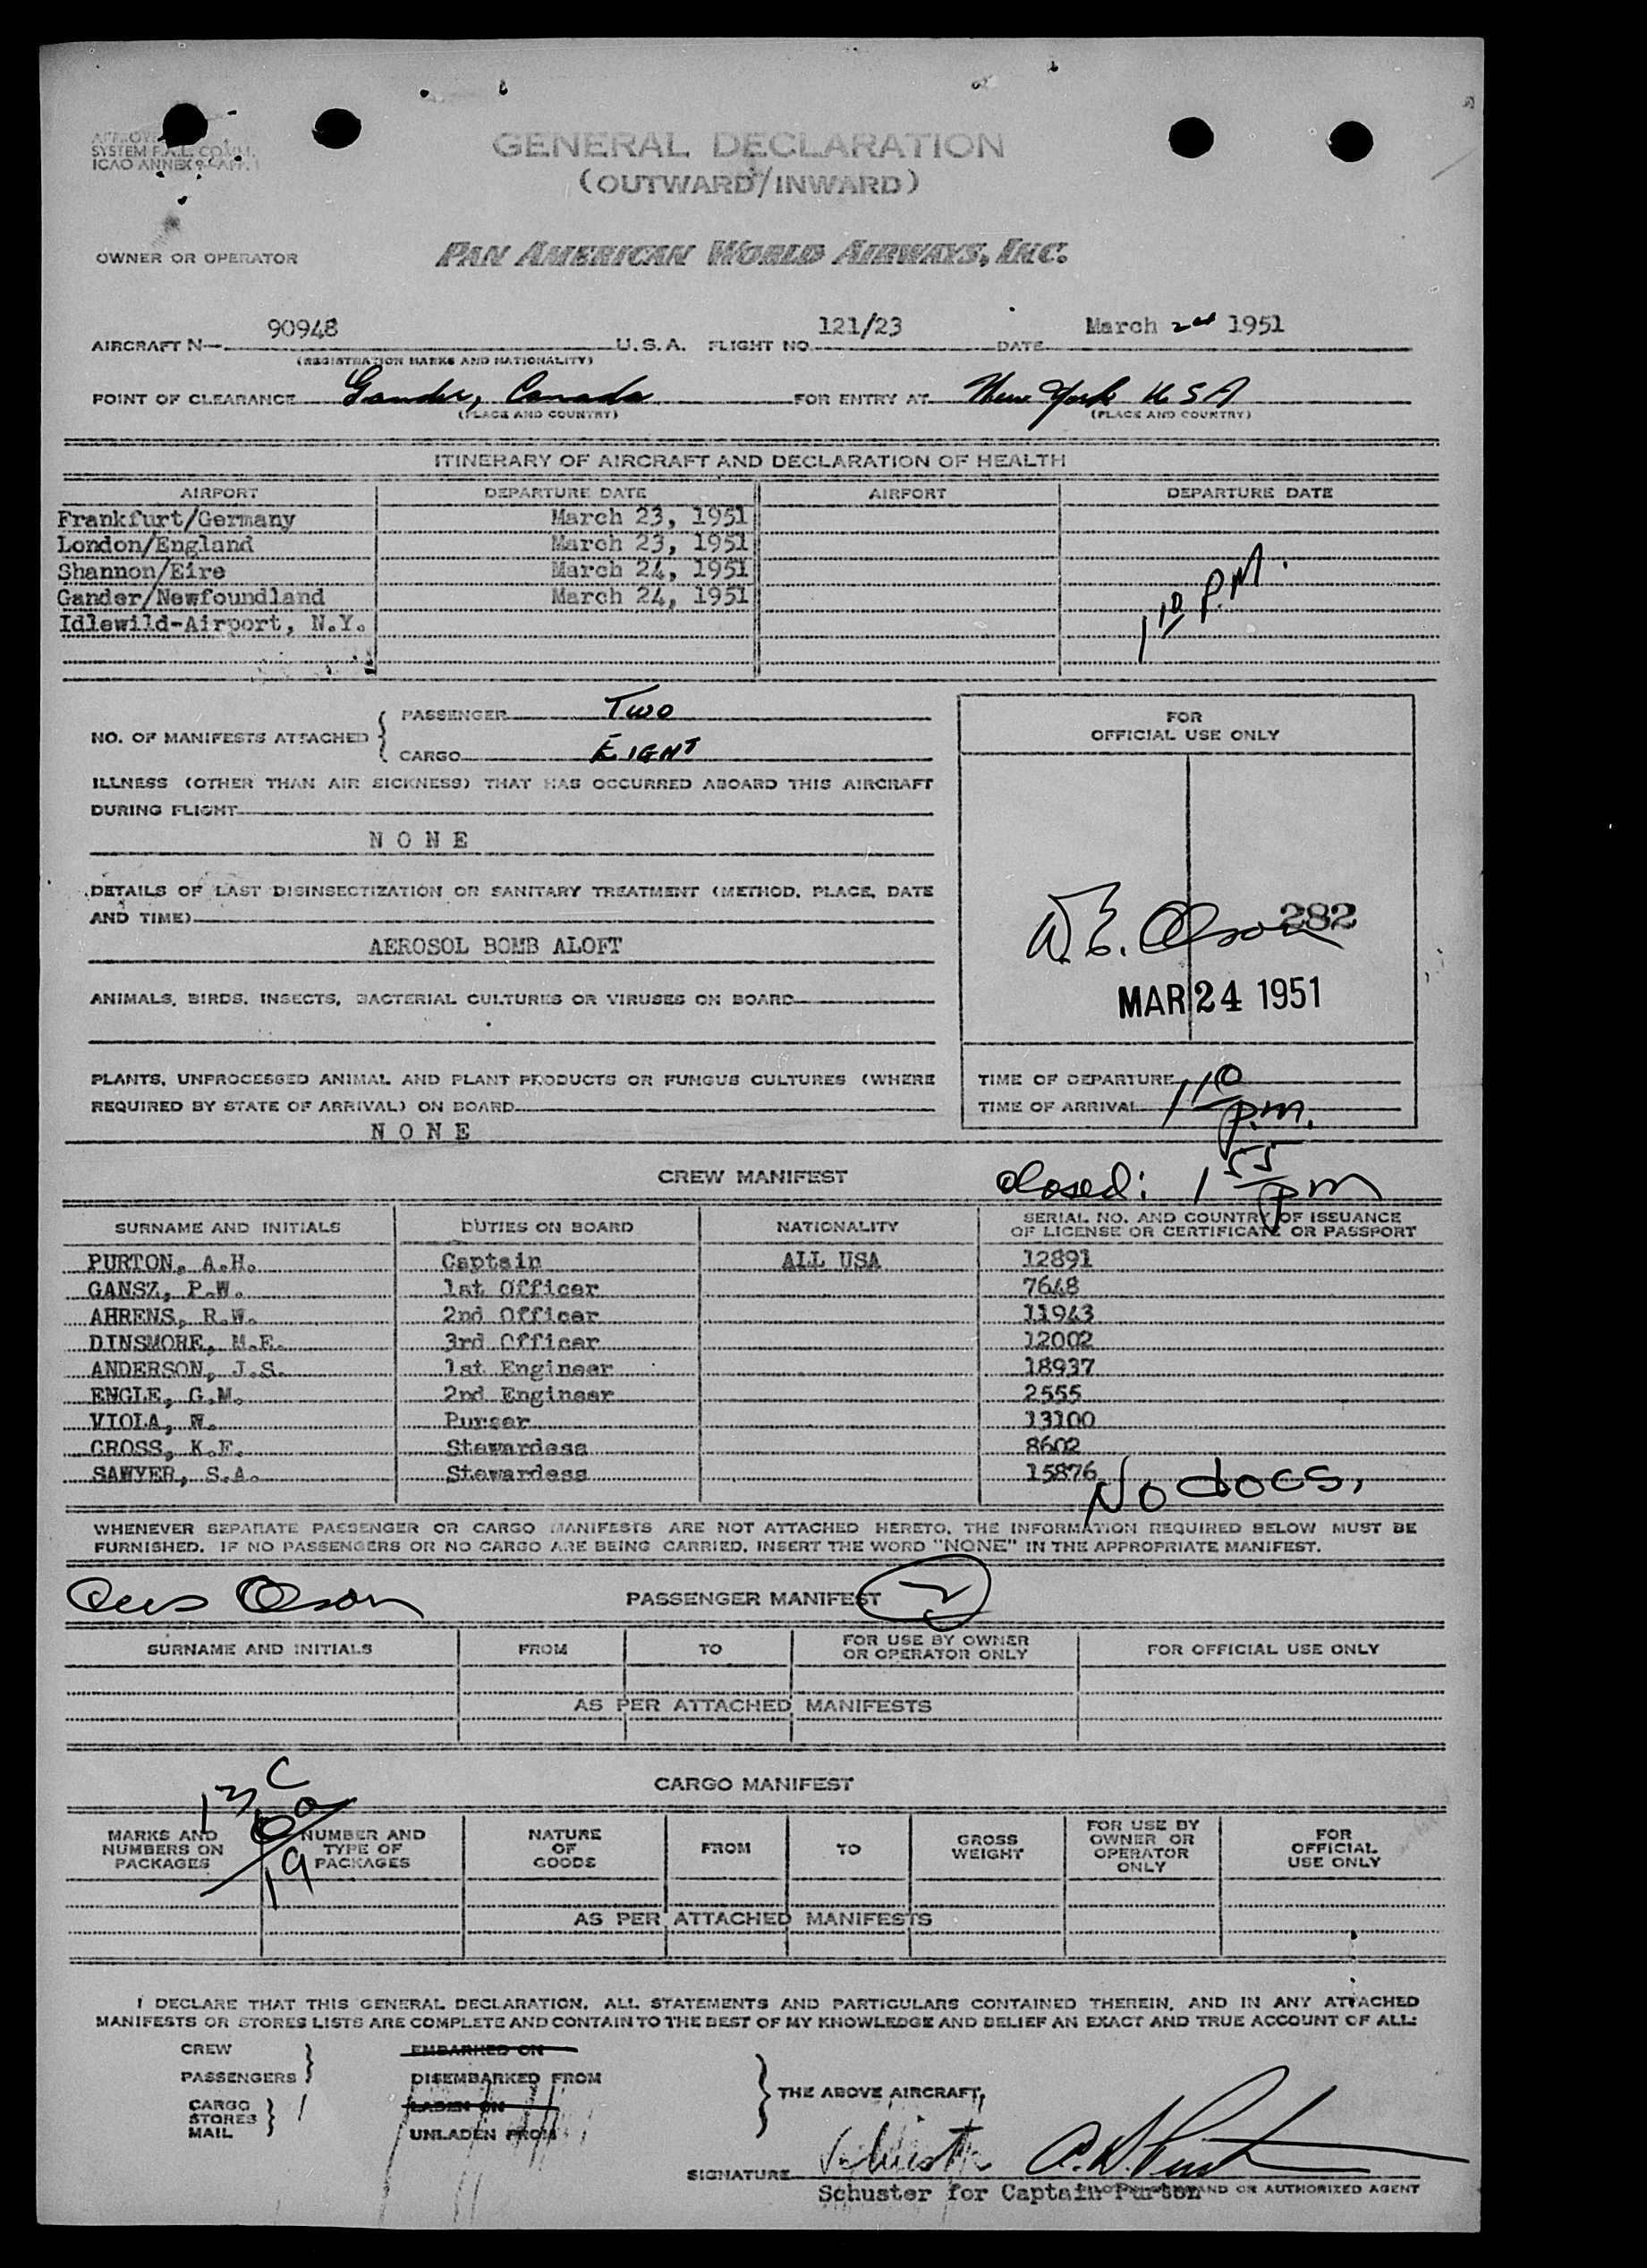 GENERAL DECLARATION
(OUTWARD/INWARD)
SYSTEM F.A.L. COMM.
ICAO ANNEX 9
OWNER OR OPERATOR PAN AMERICAN WORLD AIRWAYS, INC.
AIRCRAFT N— 90948 U.S.A. FLIGHT NO. 121/23 DATE March 1951
(REGISTRATION MARKS AND NATIONALITY)
POINT OF CLEARANCE Gander, Canada FOR ENTRY AT New York USA
(PLACE AND COUNTRY) (PLACE AND COUNTRY)
ITINERARY OF AIRCRAFT AND DECLARATION OF HEALTH
AIRPORT DEPARTURE DATE AIRPORT DEPARTURE DATE
Frankfurt/Germany March 23, 1951
London/England March 23, 1951
Shannon/Eire March 24, 1951
Gander/Newfoundland March 24, 1951
Idlewild-Airport, N.Y.
1 10 P.M.
NO. OF MANIFESTS ATTACHED { PASSENGER TWO
CARGO EIGHT
ILLNESS (OTHER THAN AIR SICKNESS) THAT HAS OCCURRED ABOARD THIS AIRCRAFT
DURING FLIGHT
N O N E
DETAILS OF LAST DISINSECTIZATION OR SANITARY TREATMENT (METHOD, PLACE, DATE
AND TIME)
AEROSOL BOMB ALOFT
ANIMALS, BIRDS, INSECTS, BACTERIAL CULTURES OR VIRUSES ON BOARD
PLANTS, UNPROCESSED ANIMAL AND PLANT PRODUCTS OR FUNGUS CULTURES (WHERE
REQUIRED BY STATE OF ARRIVAL) ON BOARD
N O N E
FOR
OFFICIAL USE ONLY
W.E. Olson 282
MAR 24 1951
TIME OF DEPARTURE
TIME OF ARRIVAL 1 10 p.m.
CREW MANIFEST closed: 1 55 pm
SURNAME AND INITIALS DUTIES ON BOARD NATIONALITY SERIAL NO. AND COUNTRY OF ISSUANCE
OF LICENSE OR CERTIFICATE OR PASSPORT
PURTON, A.H. Captain ALL USA 12891
GANSZ, P.W. 1st Officer 7648
AHRENS, R.W. 2nd Officer 11943
DINSMORE, M.E. 3rd Officer 12002
ANDERSON, J.S. 1st Engineer 18937
ENGLE, G.M. 2nd Engineer 2555
VIOLA, N. Purser 13100
CROSS, K.F. Stewardess 8602
SAWYER, S.A. Stewardess 15876
No docs.
WHENEVER SEPARATE PASSENGER OR CARGO MANIFESTS ARE NOT ATTACHED HERETO, THE INFORMATION REQUIRED BELOW MUST BE
FURNISHED. IF NO PASSENGERS OR NO CARGO ARE BEING CARRIED, INSERT THE WORD "NONE" IN THE APPROPRIATE MANIFEST.
Olson PASSENGER MANIFEST 2
SURNAME AND INITIALS FROM TO FOR USE BY OWNER
OR OPERATOR ONLY FOR OFFICIAL USE ONLY
AS PER ATTACHED MANIFESTS
CARGO MANIFEST
13 C
19
MARKS AND
NUMBERS ON
PACKAGES
NUMBER AND
TYPE OF
PACKAGES
NATURE
OF
GOODS
FROM
TO
GROSS
WEIGHT
FOR USE BY
OWNER OR
OPERATOR
ONLY
FOR
OFFICIAL
USE ONLY
AS PER ATTACHED MANIFESTS
I DECLARE THAT THIS GENERAL DECLARATION, ALL STATEMENTS AND PARTICULARS CONTAINED THEREIN, AND IN ANY ATTACHED
MANIFESTS OR STORES LISTS ARE COMPLETE AND CONTAIN TO THE BEST OF MY KNOWLEDGE AND BELIEF AN EXACT AND TRUE ACCOUNT OF ALL:
CREW EMBARKED ON
PASSENGERS DISEMBARKED FROM
THE ABOVE AIRCRAFT.
CARGO LADEN ON
STORES
MAIL UNLADEN FROM
SIGNATURE
Schuster for Captain Purton AND OR AUTHORIZED AGENT